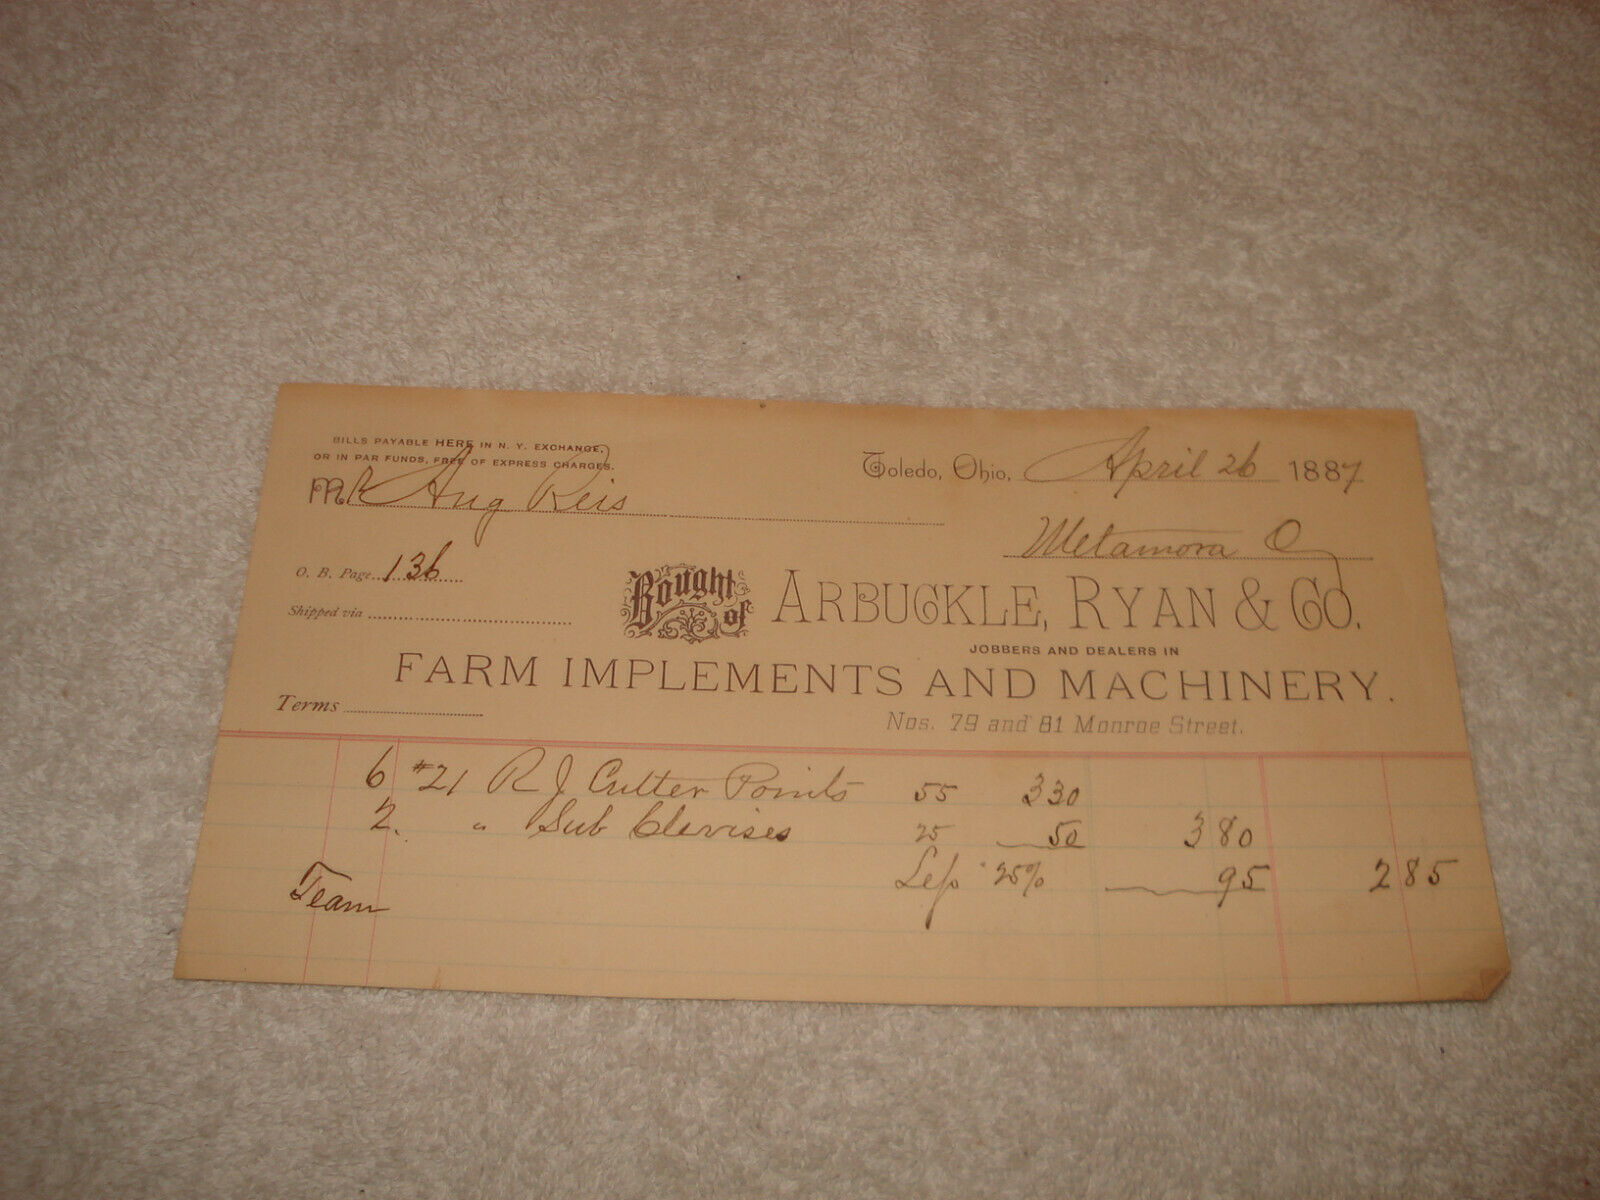 BILLS PAYABLE HERE IN N. Y. EXCHANGE,
OR IN PAR FUNDS, FREE OF EXPRESS CHARGES.
Toledo, Ohio, April 26 1887
Mr Aug Reis
Metamora O
O. B. Page 136
Shipped via
Bought of ARBUCKLE, RYAN & CO.
JOBBERS AND DEALERS IN
FARM IMPLEMENTS AND MACHINERY.
Terms
Nos. 79 and 81 Monroe Street.
6 #21 R J Cutter Points 55 330
2. " Sub Clevises 25 50 380
Less 25% 95 285
Team